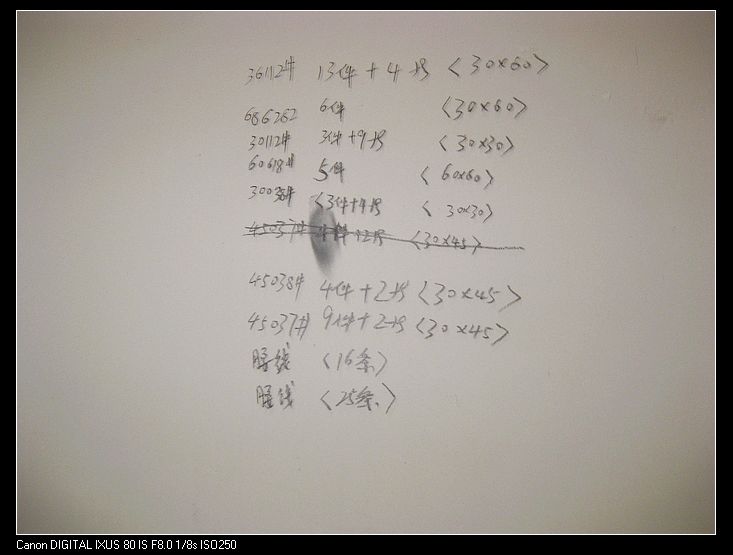 36112# 13件+4片 <30×60>
686262 6件 <30×60>
30112# 3件+9片 <30×30>
60618# 5件 <60×60>
30038# <3件+4片 <30×30>
45037# +2片 <30×45>
45038# 4件+2片 <30×45>
45037# 9件+2片 <30×45>
腰线 <16条>
腰线 <25条>
Canon DIGITAL IXUS 80 IS F8.0 1/8s ISO250